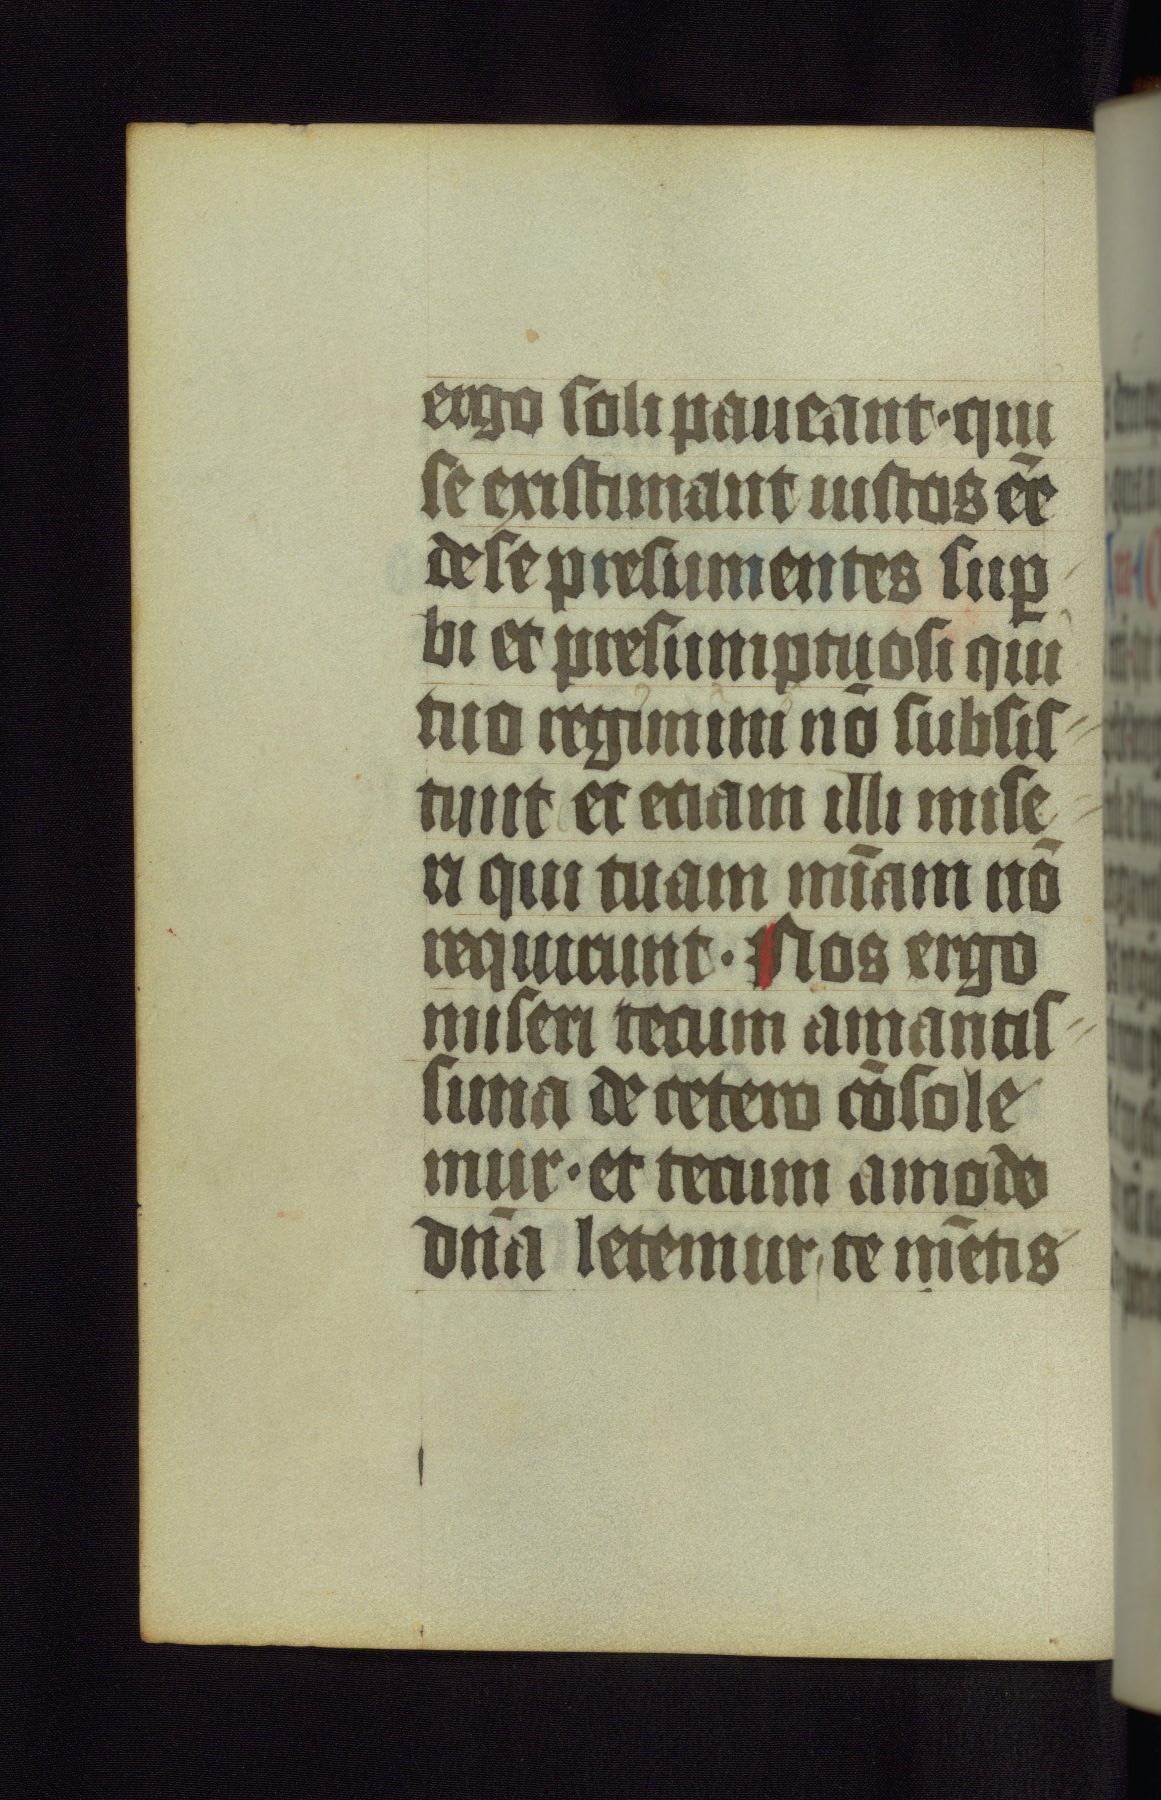 ergo soli paueant · qui
se existimant iustos ēe
de se presumentes sup̱
bi et presumptuosi qui
tuo regimini nō subsis
tunt et etiam illi mise
ri qui tuam mīam nō
requirunt · Nos ergo
miseri tecum amantis
sima de cetero cōsole
mur · et tecum amodo
dn̄a letemur te mētis